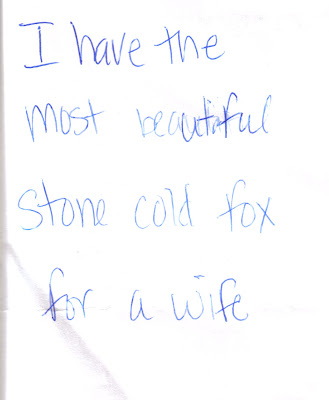 I have the
most beautiful
stone cold fox
for a wife